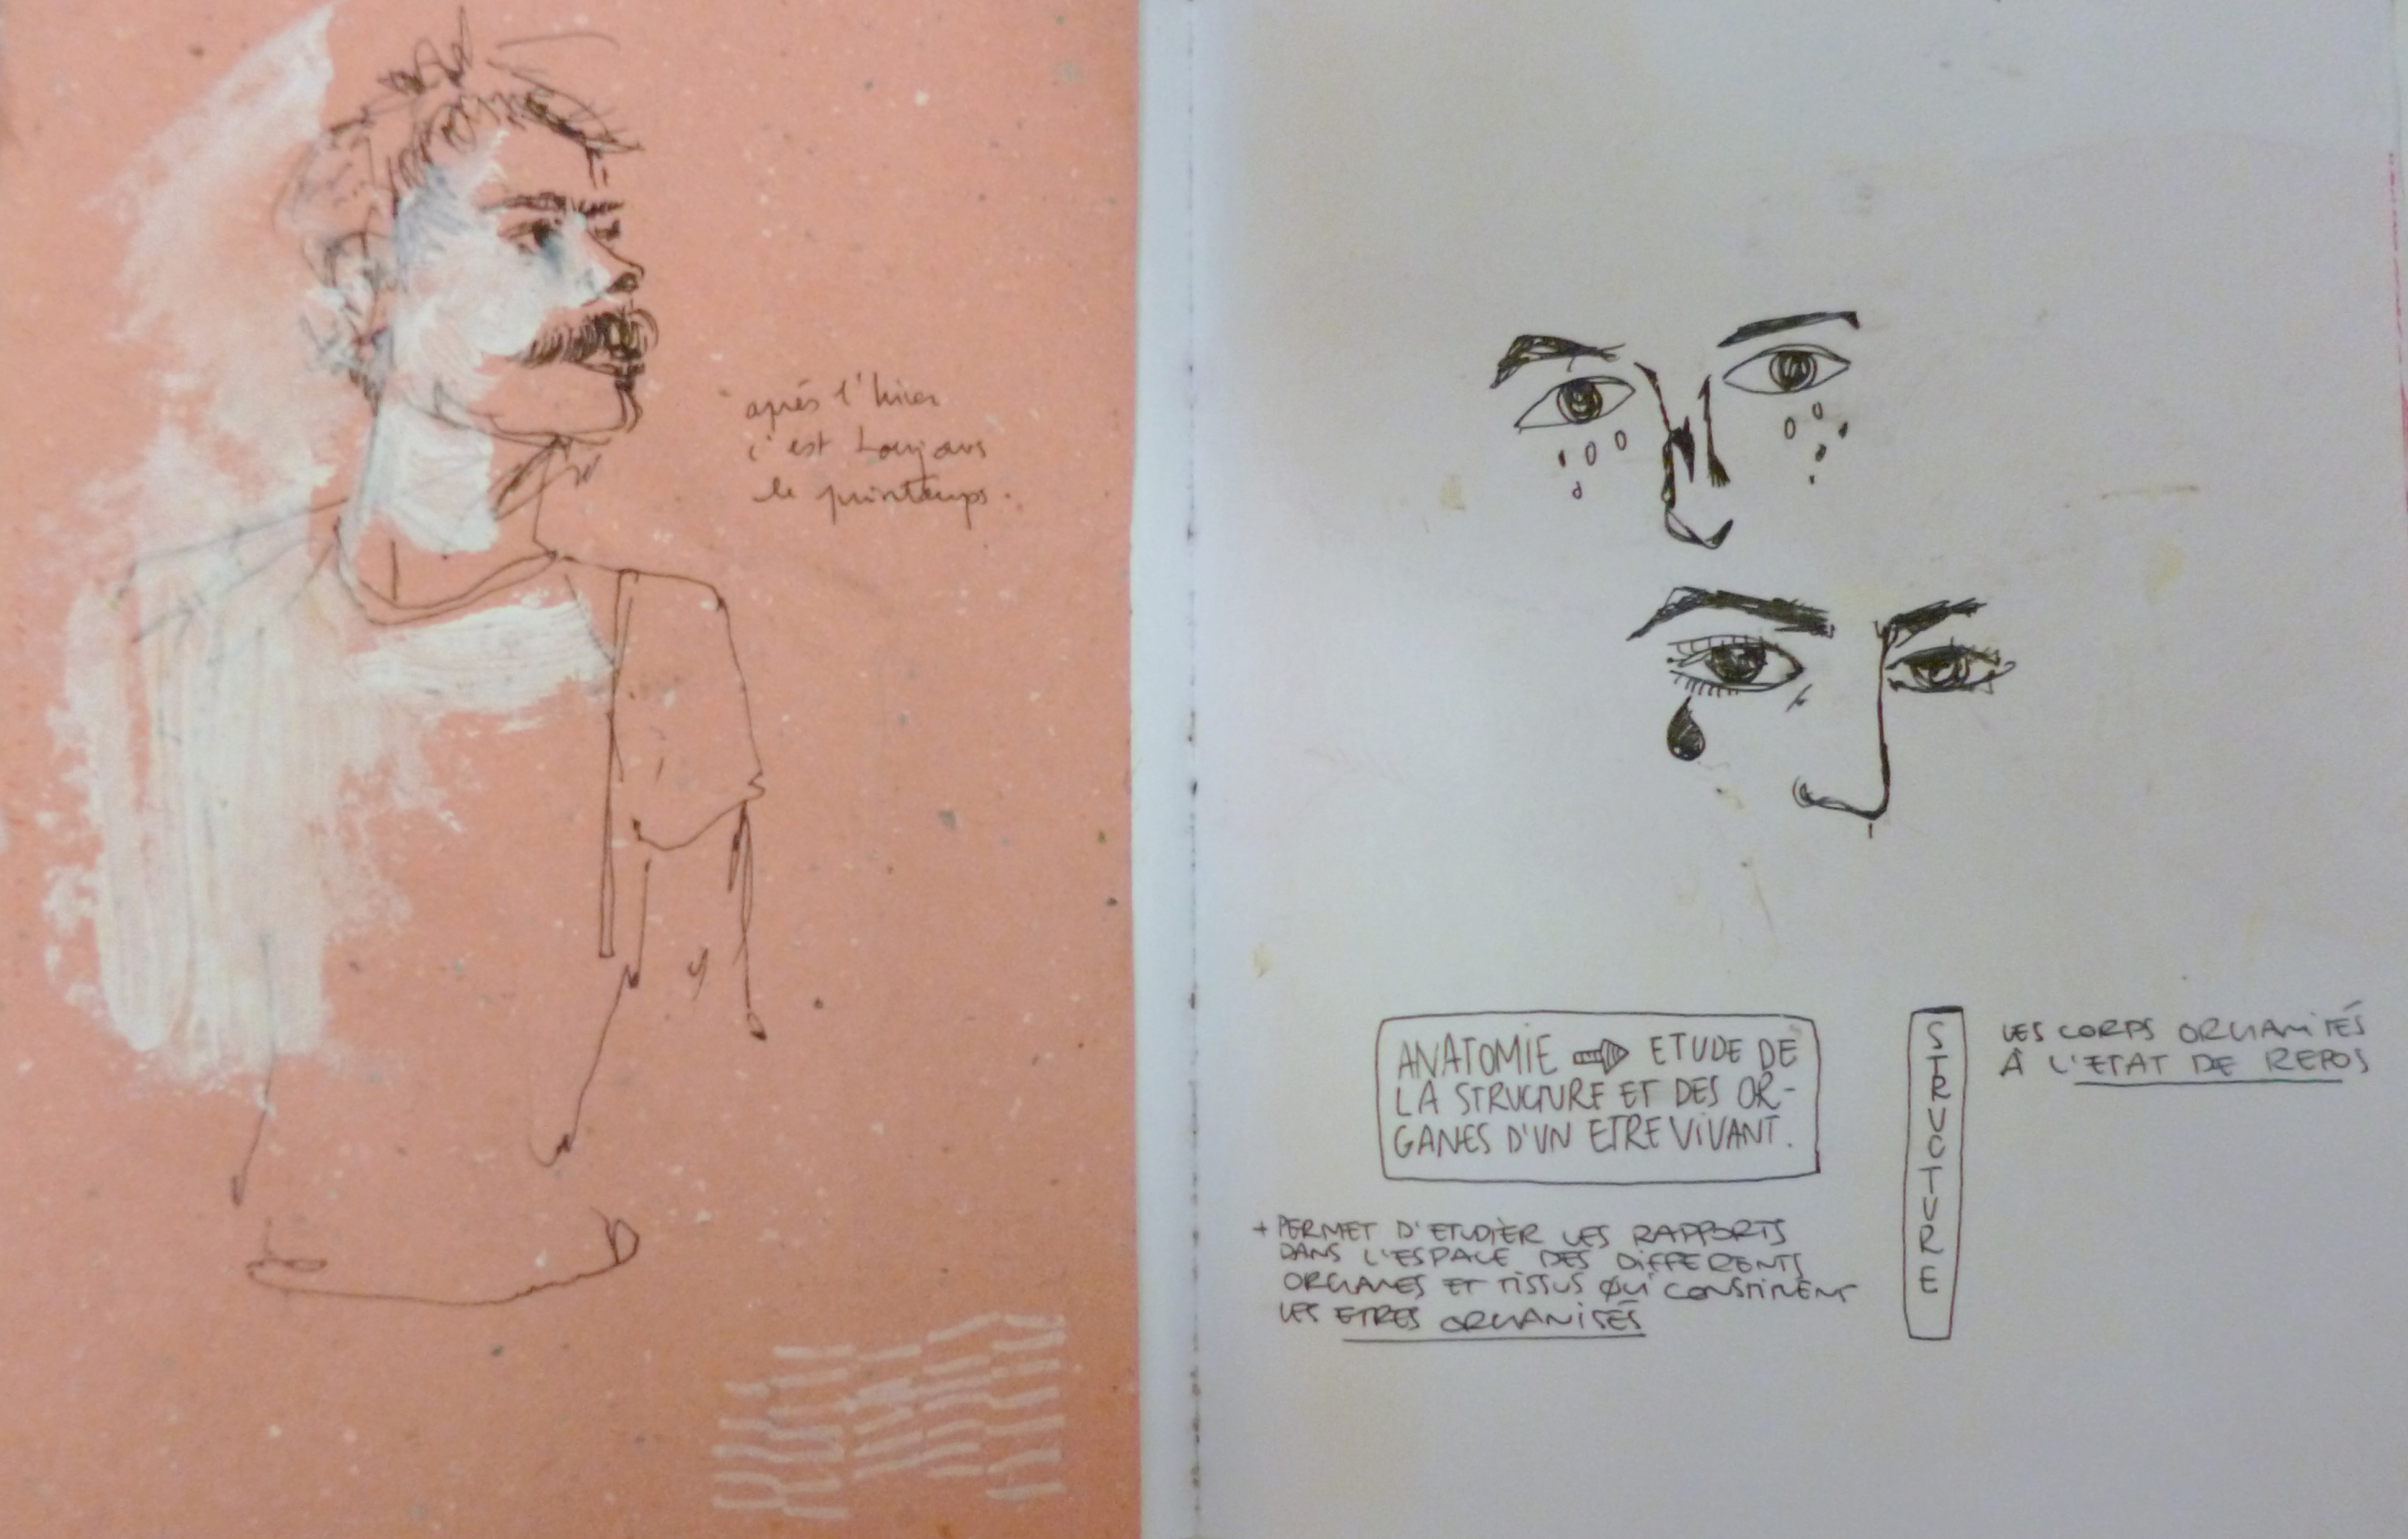 après l'hiver
c'est toujours
le printemps.
ANATOMIE ETUDE DE
LA STRUCTURE ET DES OR-
GANES D'UN ETRE VIVANT.
+ PERMET D'ETUDIER LES RAPPORTS
DANS L'ESPACE DES DIFFERENTS
ORGANES ET TISSUS QUI CONSTITUENT
LES ETRES ORGANISÉS
STRUCTURE
LES CORPS ORGANISÉS
À L'ETAT DE REPOS